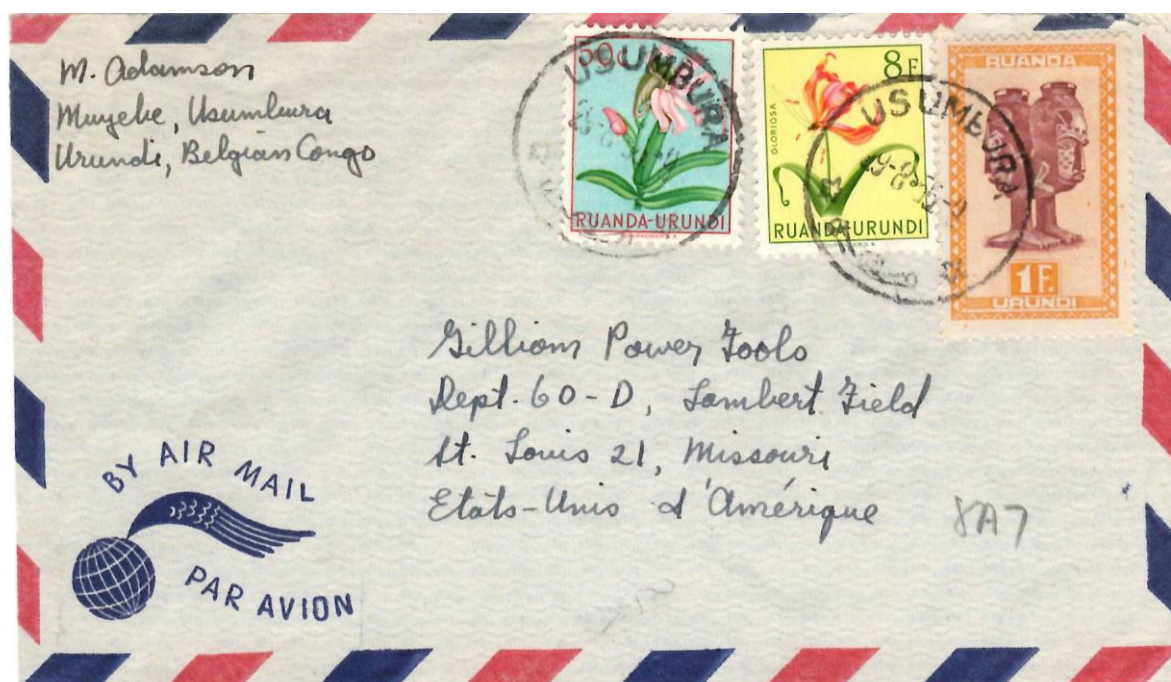 M. Adamson
Muyebe, Usumbura
Urundi, Belgian Congo
50c
RUANDA-URUNDI
8F
GLORIOSA
RUANDA-URUNDI
RUANDA
1F.
URUNDI
USUMBURA
USUMBURA
Gilliom Power Tools
Dept. 60-D, Lambert Field
St. Louis 21, Missouri
Etats-Unis d'Amérique
8A7
BY AIR MAIL
PAR AVION